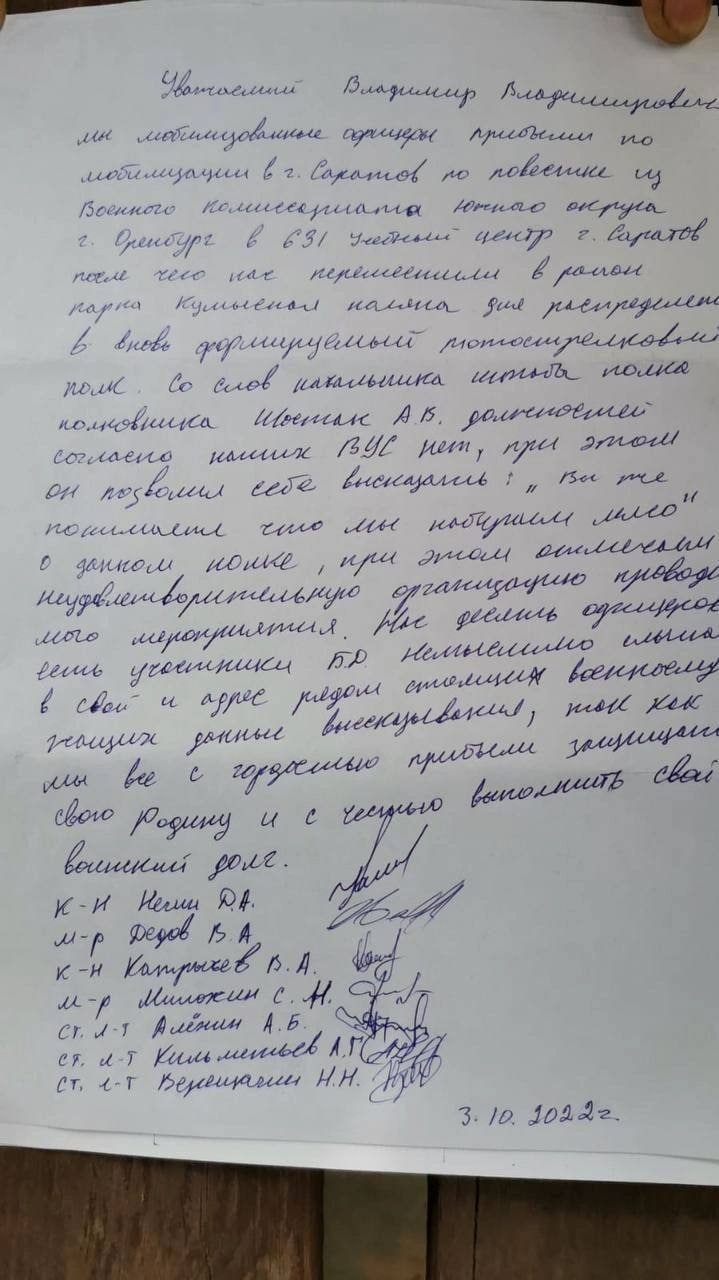 Уважаемый Владимир Владимирович
мы мобилизованные офицеры прибыли по
мобилизации в г. Саратов по повестке из
Военного Комиссариата южного округа
г. Оренбург в 631 учебный центр г. Саратов
после чего нас переместили в район
парка Кумысная поляна для распределен
в вновь формируемый мотострелковый
полк. Со слов начальника штаба полка
полковника Шостак А.В. должностей
согласно наших ВУС нет, при этом
он позволил себе высказать: „Вы же
понимаете что мы набираем мясо"
о данном полке, при этом отмечаем
неудовлетворительную организацию проводи
мого мероприятия. Нас десять офицеров
есть участники Б.Д. Немыслимо слыша
в свой и адрес рядом стоящих военнослу
жащих данные высказывания, так как
мы все с гордостью прибыли защищат
свою Родину и с честью выполнить свой
воинский долг.
к-н Д.А.
м-р Дедов В.А
к-н В.А.
м-р Милохин С.Н.
ст. л-т Алёхин А.Б.
ст. л-т Кильметьев А.Г
ст. л-т Верещагин Н.Н.
3.10.2022г.